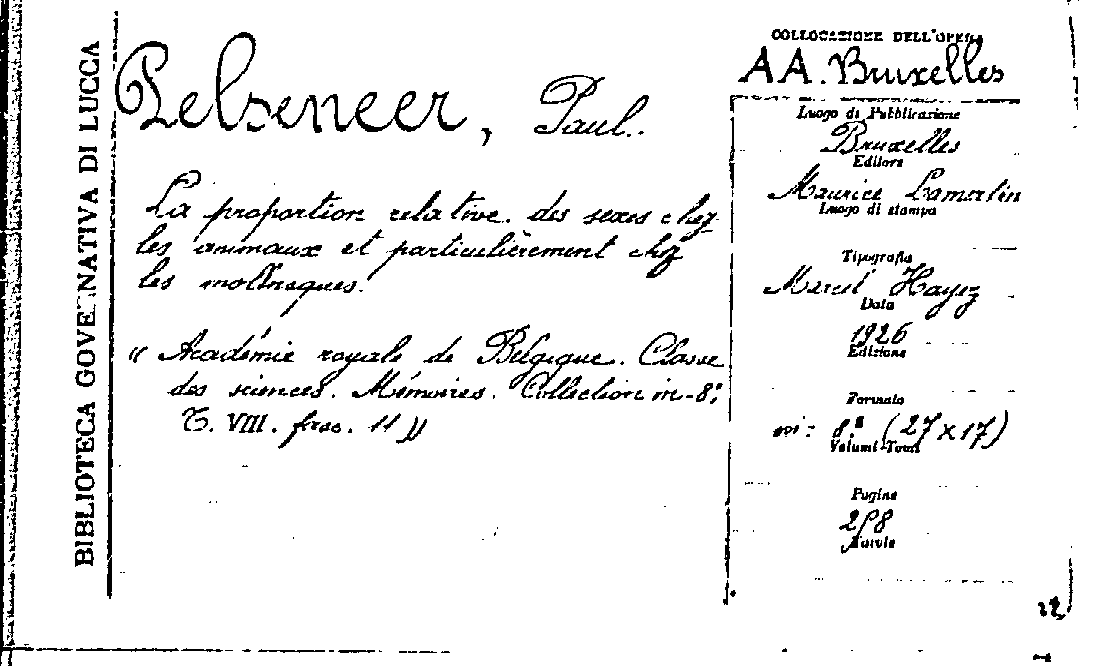 BIBLIOTECA GOVERNATIVA DI LUCCA
Pelseneer, Paul.
La proportion relative des sexes chez
les animaux et particulièrement chez
les mollusques.
« Académie royale de Belgique. Classe
des sciences. Mémoires. Collection in-8°.
T. VIII. fasc. 11 »
COLLOCAZIONE DELL'OPERA
AA. Bruxelles
Luogo di Pubblicazione
Bruxelles
Editore
Maurice Lamertin
Luogo di stampa
Tipografia
Marcel Hayez
Data
1926
Edizione
Formato
8° (27×17)
Volumi-Tomi
Pagine
258
Tavole